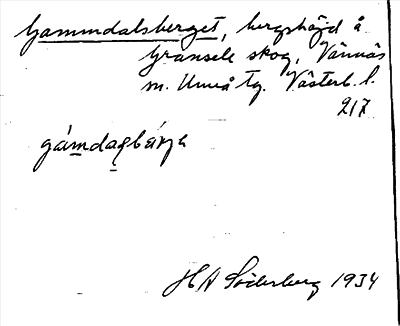 Gammdalsberget, bergshöjd å
Gransele skog, Vännäs
sn. Umeå tg. Västerb. l.
217
gámdaļbárja
H A Söderberg 1934